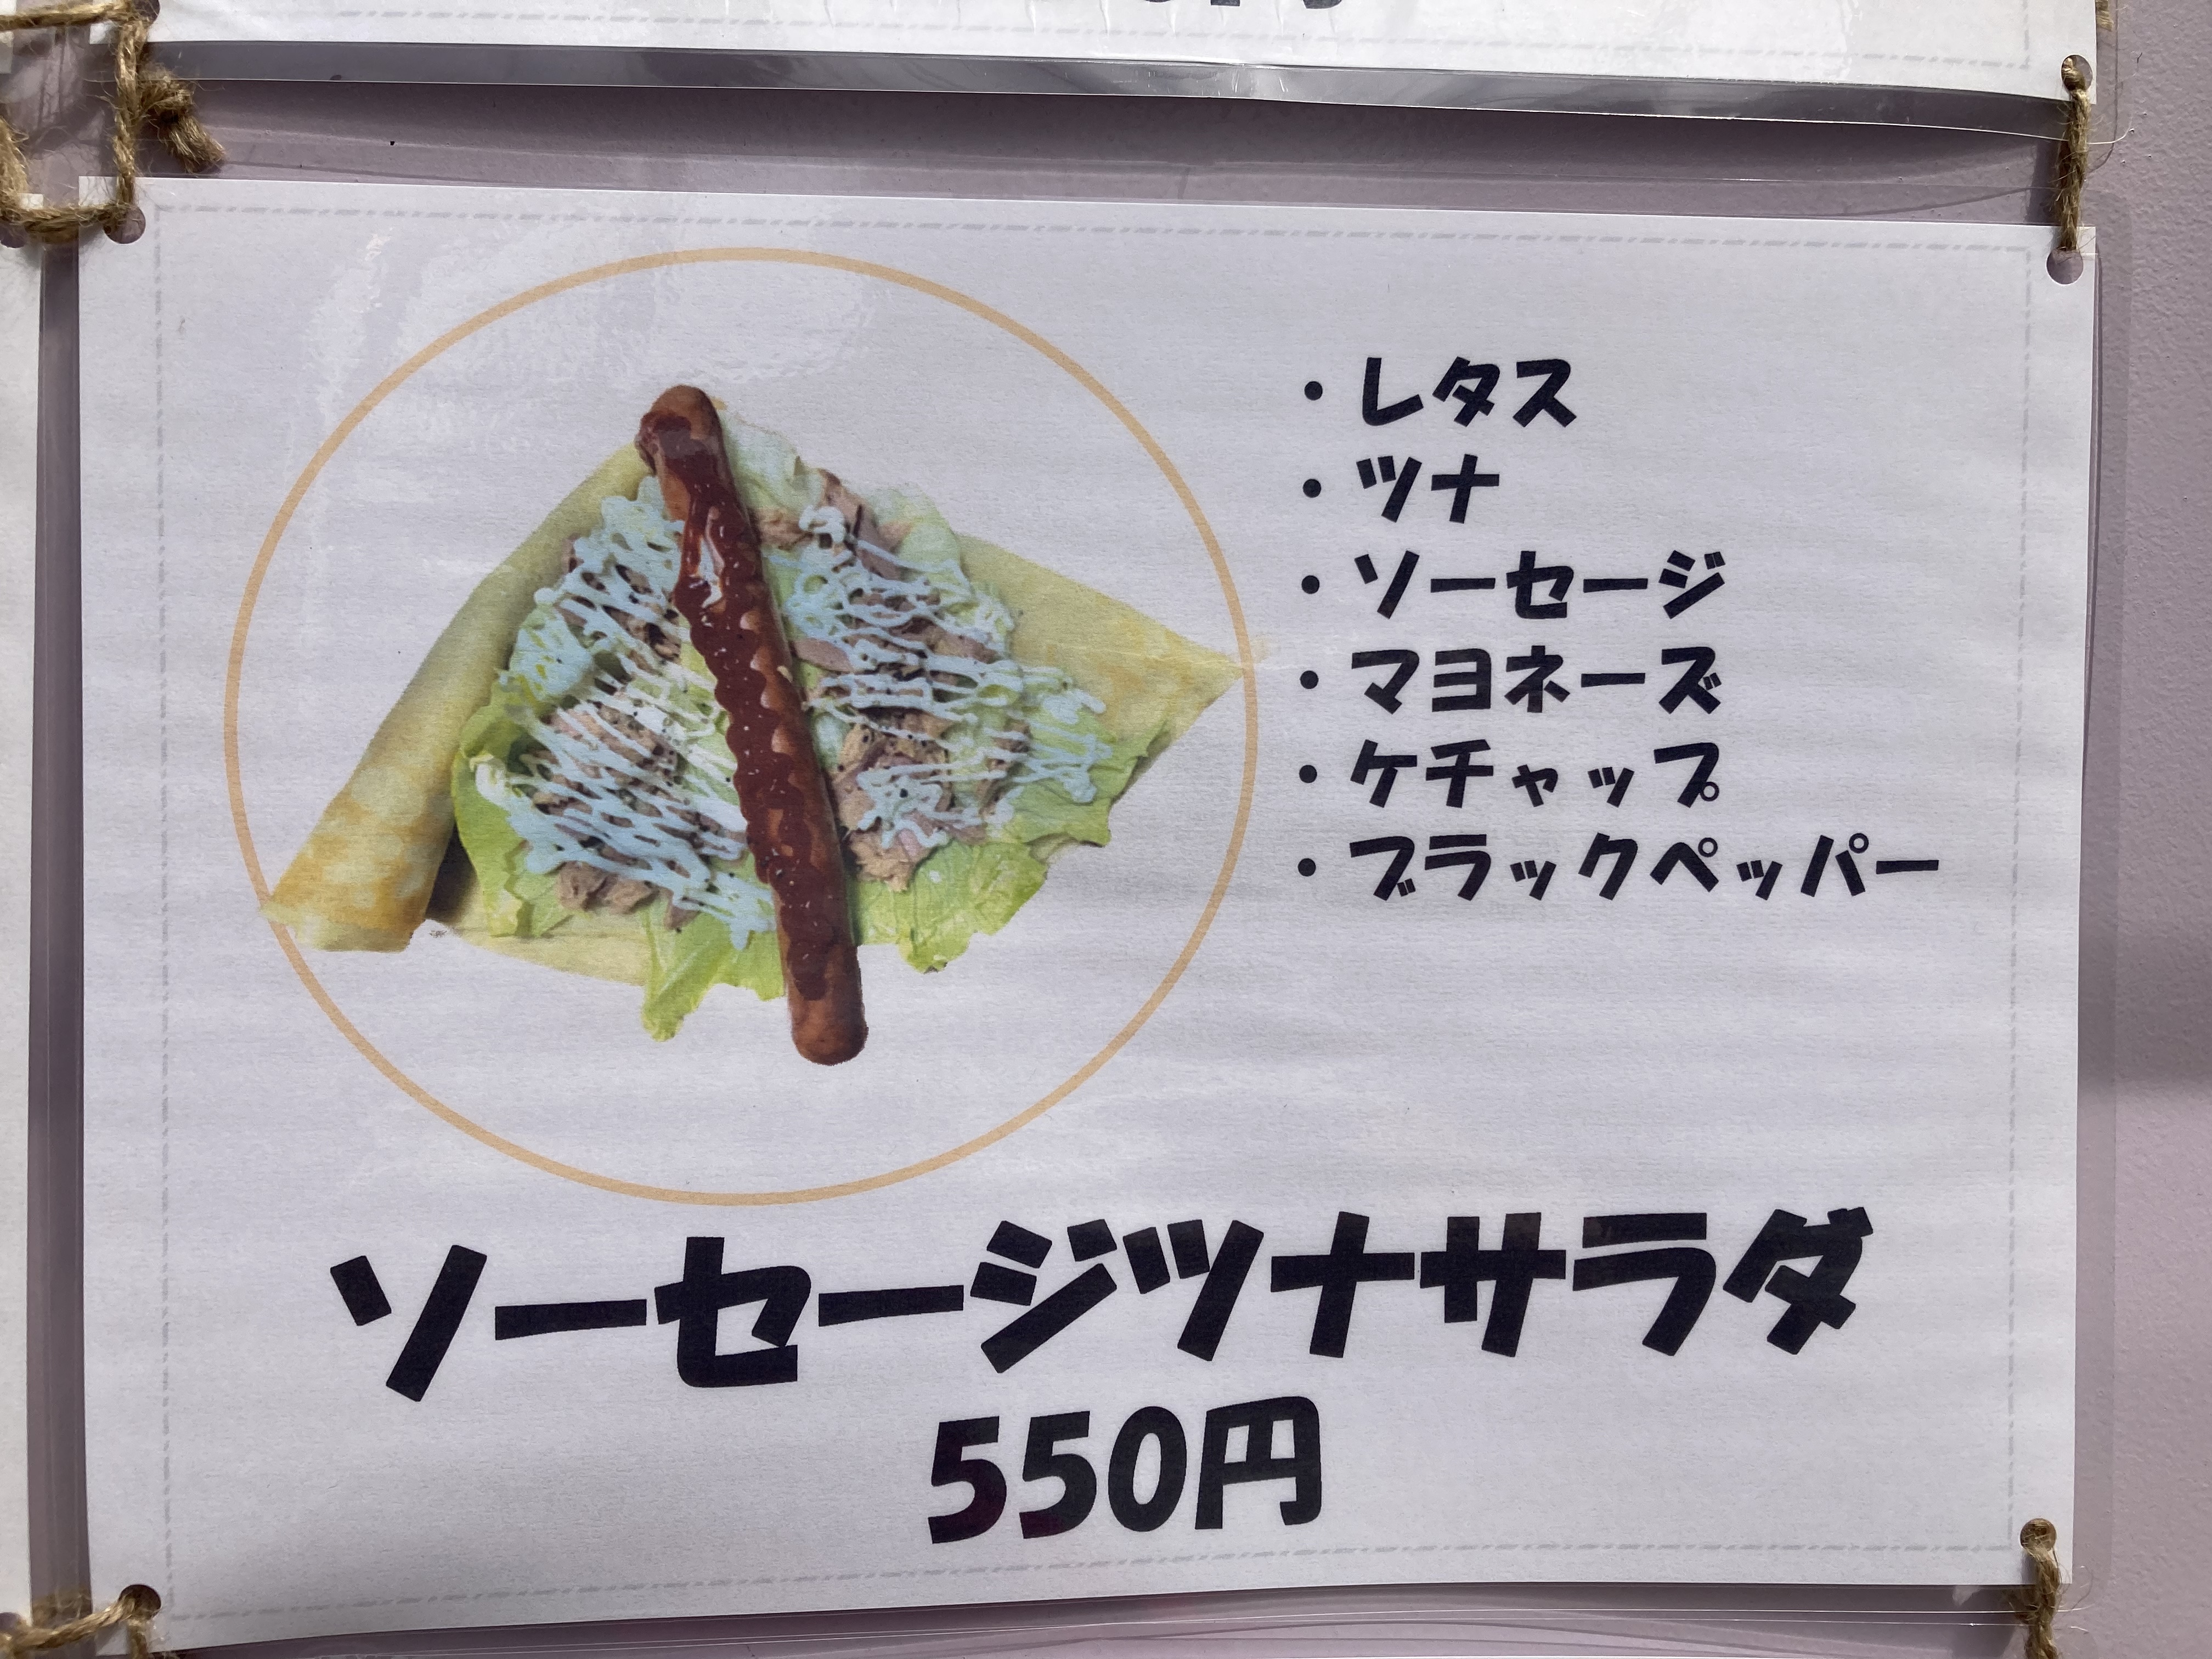 ・レタス
・ツナ
・ソーセージ
・マヨネーズ
・ケチャップ
・ブラックペッパー
ソーセージツナサラダ
550円